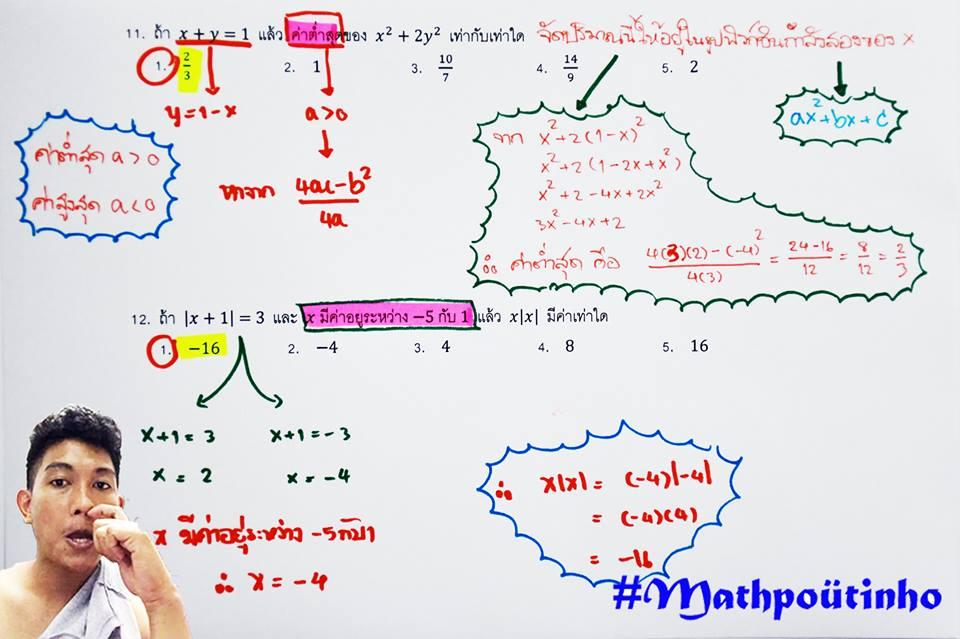 11. ถ้า x + y = 1 แล้ว ค่าต่ำสุดของ x² + 2y² เท่ากับเท่าใด
จัดปริมาณนี้ให้อยู่ในรูปฟังก์ชันกำลังสองของ x
1. 2/3 2. 1 3. 10/7 4. 14/9 5. 2
y = 1 - x
a > 0
ax² + bx + c
ค่าต่ำสุด a > 0
ค่าสูงสุด a < 0
หาจาก (4ac - b²)/4a
จาก x² + 2(1 - x)²
x² + 2(1 - 2x + x²)
x² + 2 - 4x + 2x²
3x² - 4x + 2
∴ ค่าต่ำสุด คือ (4(3)(2) - (-4)²)/4(3) = (24 - 16)/12 = 8/12 = 2/3
12. ถ้า |x + 1| = 3 และ x มีค่าอยู่ระหว่าง −5 กับ 1 แล้ว x|x| มีค่าเท่าใด
1. −16 2. −4 3. 4 4. 8 5. 16
x + 1 = 3 x + 1 = -3
x = 2 x = -4
x มีค่าอยู่ระหว่าง -5 กับ 1
∴ x = -4
∴ x|x| = (-4)|-4|
= (-4)(4)
= -16
#Mathpoütinho